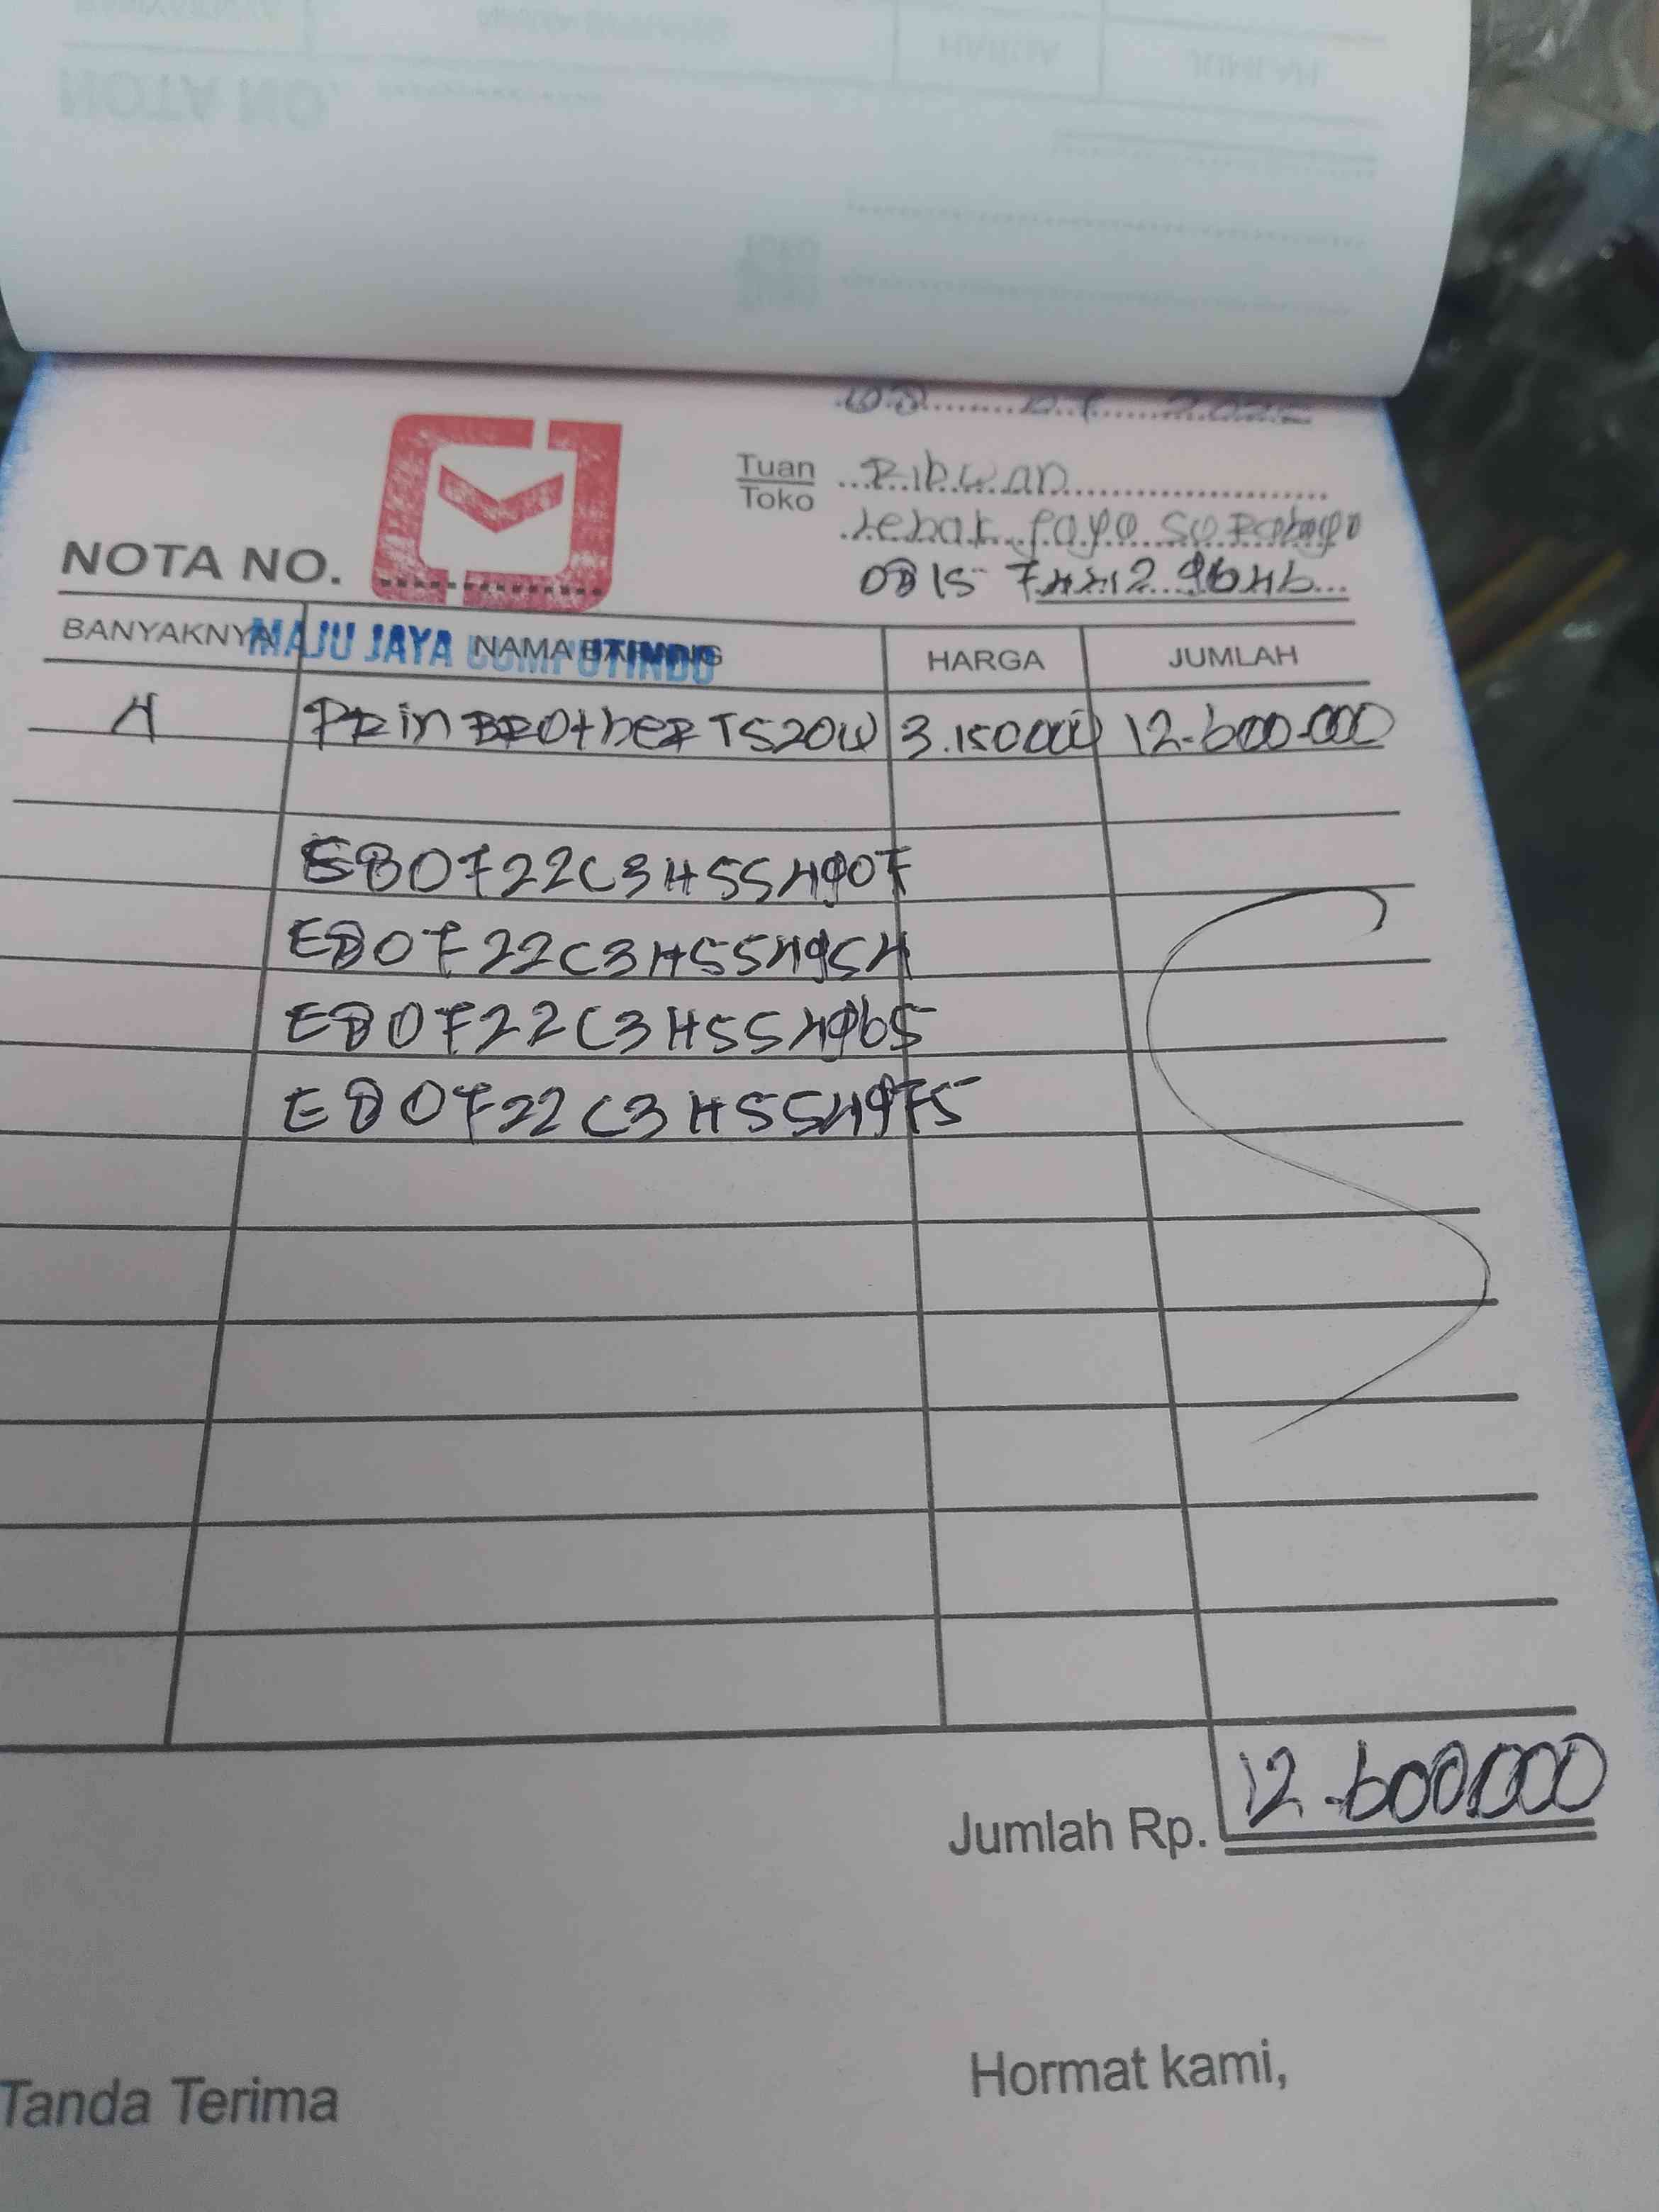 Tuan
Toko
Ridwan
Lebak Jaya Surabaya
NOTA NO.
MAJU JAYA COMPUTINDO
BANYAKNYA NAMA BARANG HARGA JUMLAH
4 PRin BROtheR T520W 3.150.000 12.600.000
E80F22C3H554907
E80F22C3H554954
E80F22C3H554965
E80F22C3H554975
Jumlah Rp. 12.600.000
Tanda Terima
Hormat kami,